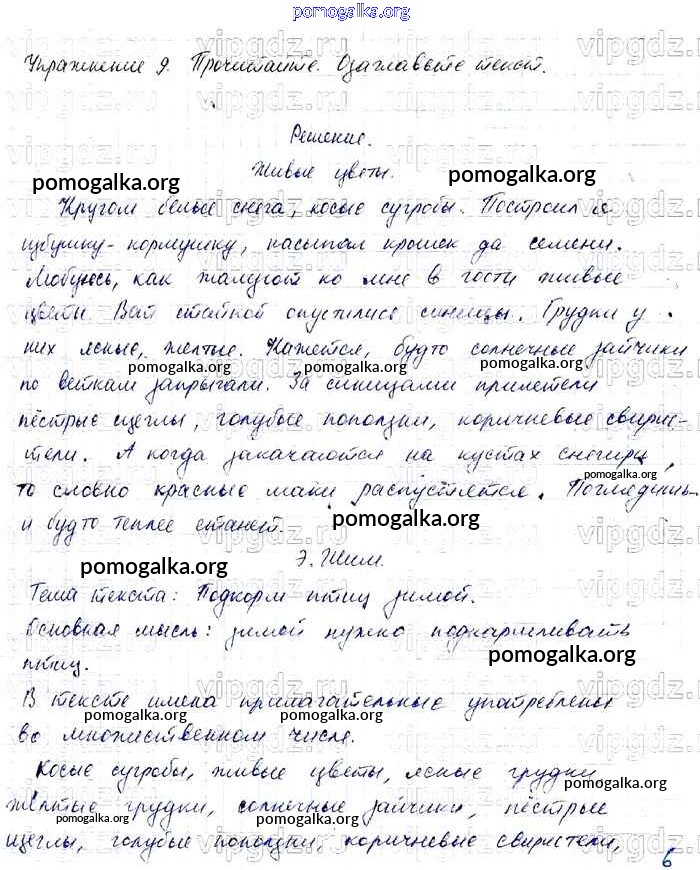 pomogalka.org
Упражнение 9. Прочитайте. Озаглавьте текст.
Решение.
Живые цветы.
pomogalka.org
pomogalka.org
Кругом белые снега, косые сугробы. Построил я
избушку-кормушку, насыпал крошек да семени.
Любуюсь, как жалуют ко мне в гости живые
цветы. Вот стайкой опустились синицы. Грудки у
них ясные, желтые. Кажется, будто солнечные зайчики
pomogalka.org
pomogalka.org
по веткам запрыгали. За синицами прилетели
пёстрые щеглы, голубые поползни, коричневые свирис-
тели. А когда закачаются на кустах снегири,
pomogalka.org
то словно красные маки распустятся. Поглядишь-
и будто теплее станет.
pomogalka.org
Э. Шим.
pomogalka.org
Тема текста: Подкорм птиц зимой.
Основная мысль: зимой нужно подкармливать
птиц.
pomogalka.org
В тексте имена прилагательные употреблены
pomogalka.org
pomogalka.org
во множественном числе.
Косые сугробы, живые цветы, ясные грудки
pomogalka.org
желтые грудки, солнечные зайчики, пёстрые
pomogalka.org
pomogalka.org
щеглы, голубые поползни, коричневые свиристели,
6